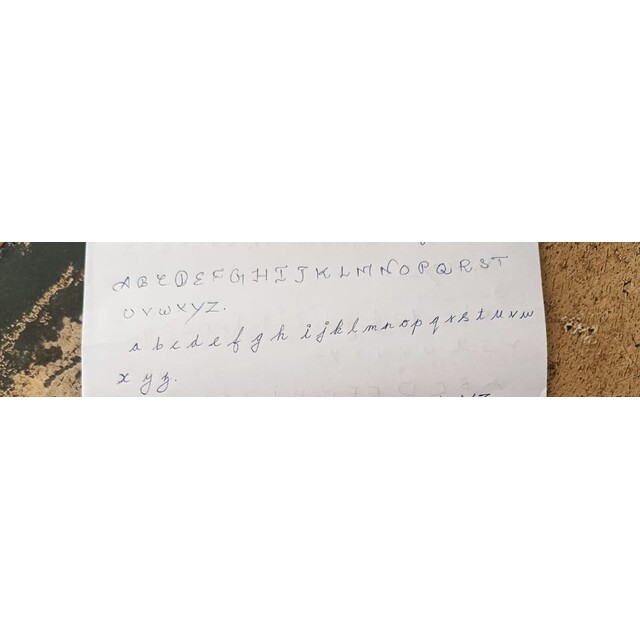 A B C D E F G H I J K L M N O P Q R S T
U V W X Y Z.
a b c d e f g h i j k l m n o p q r s t u v w
x y z.